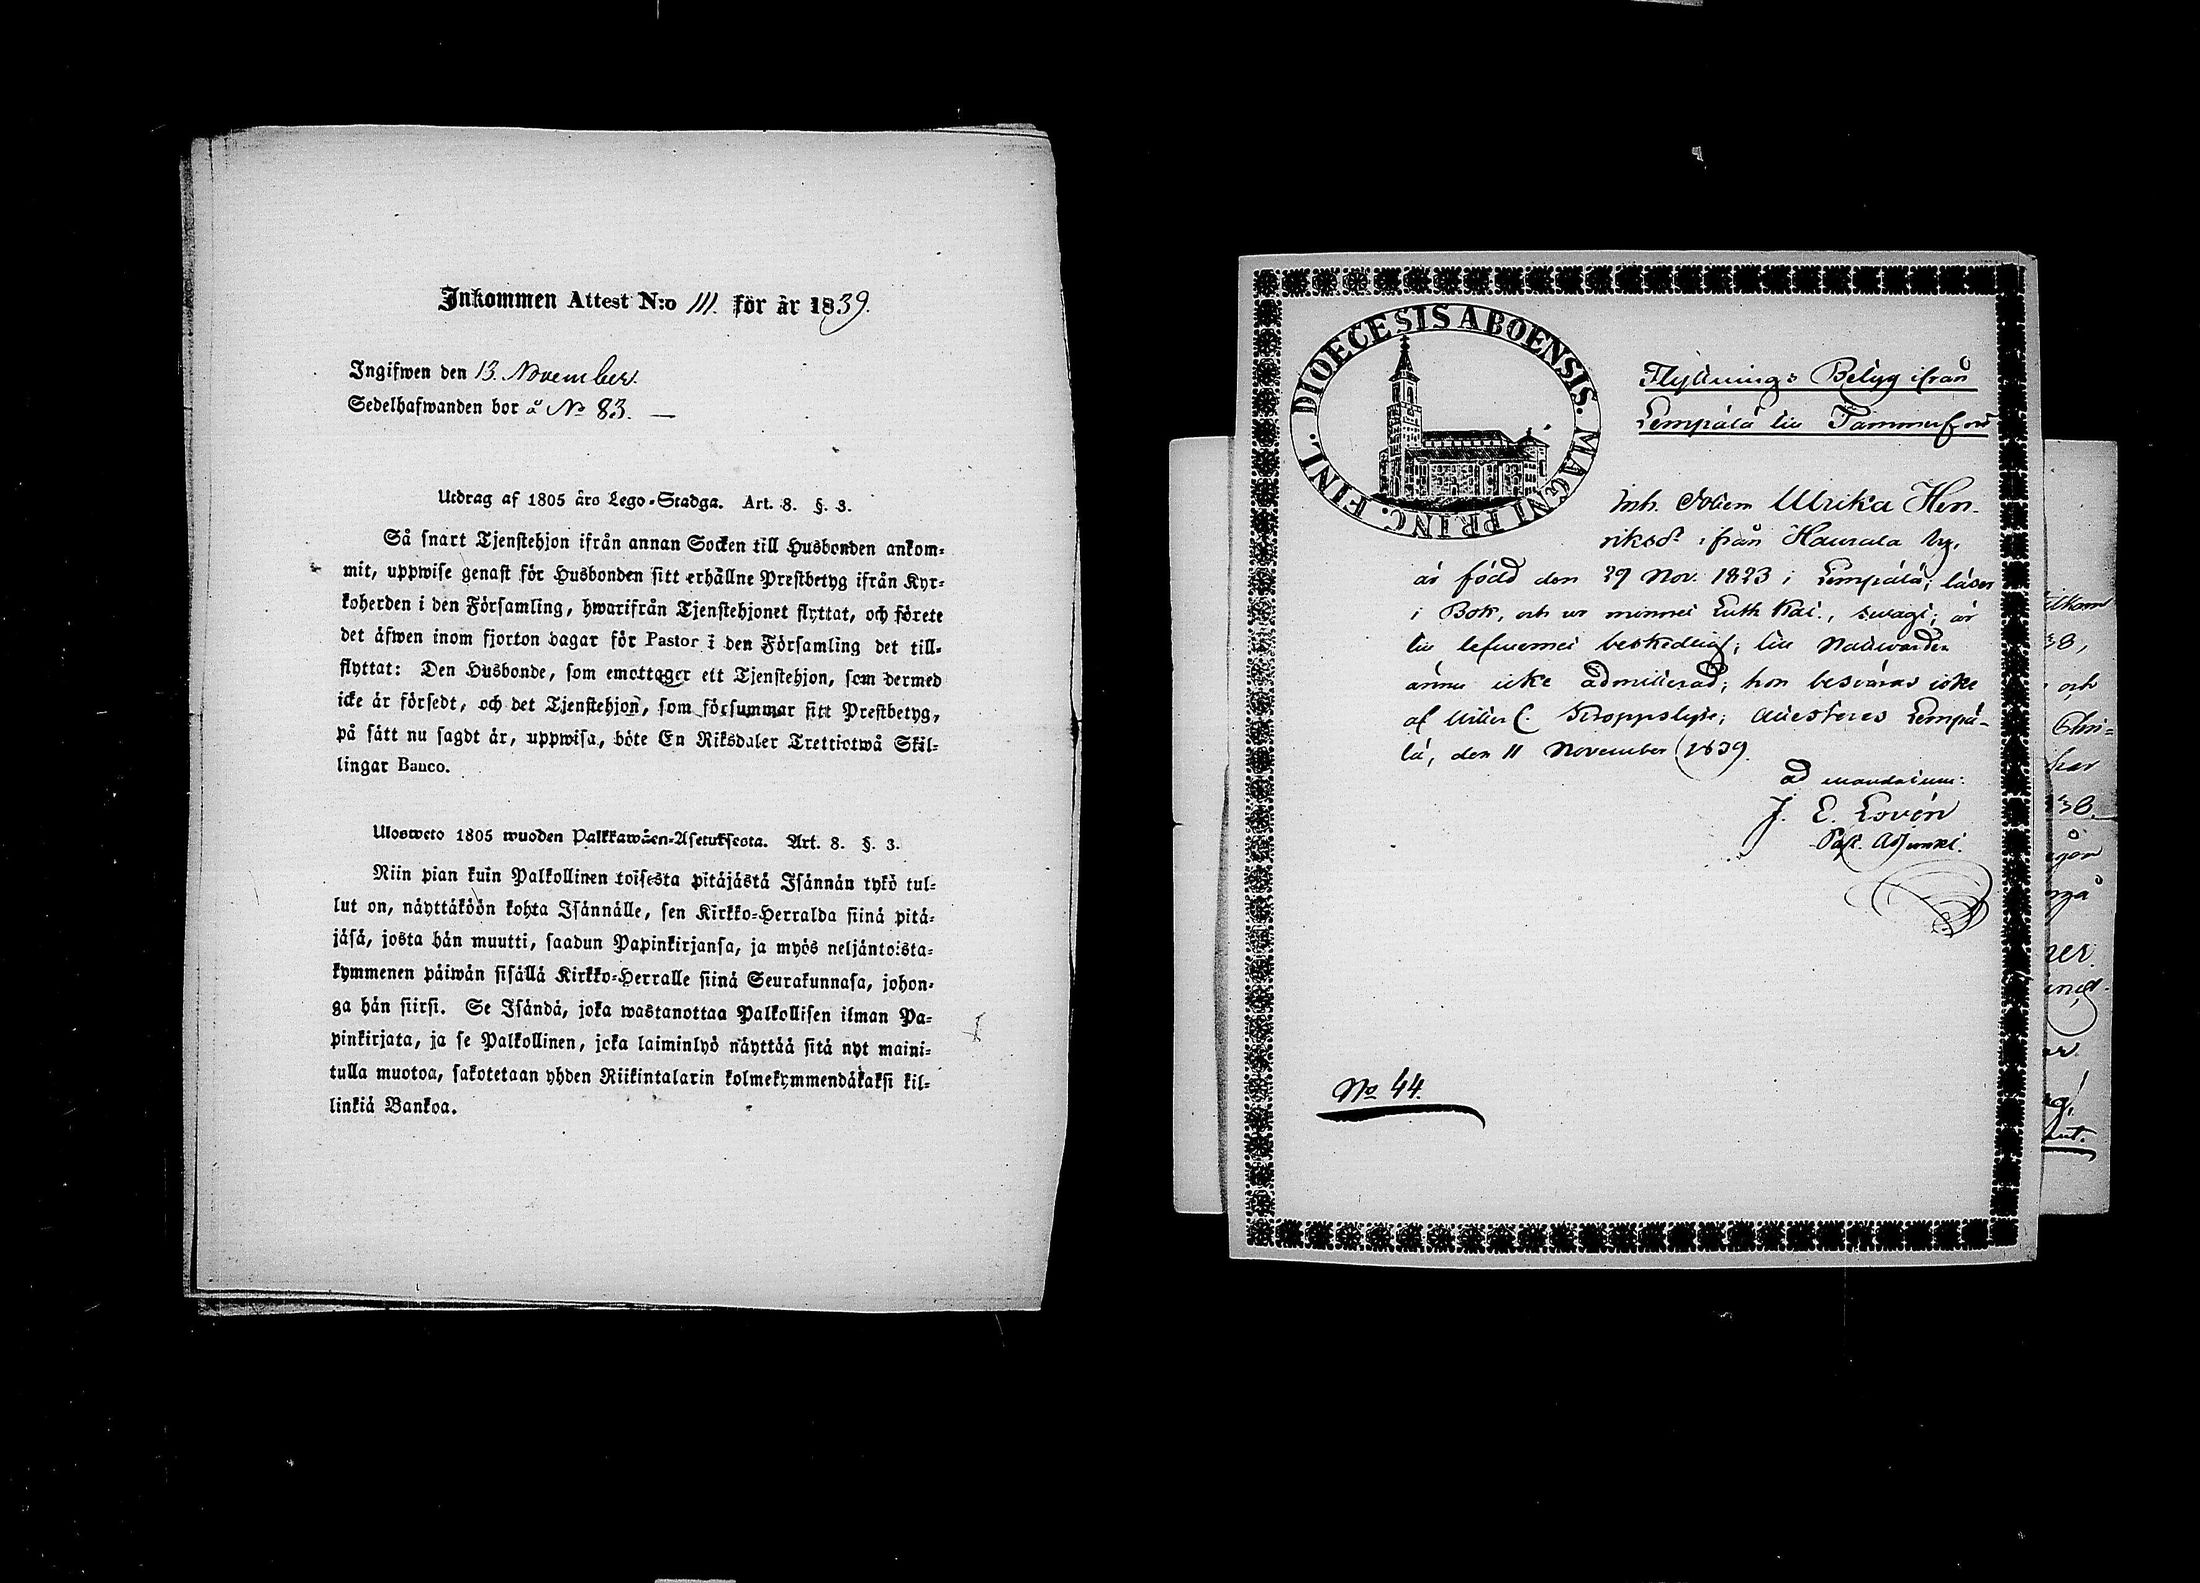 Inkommen Attest N:o 111. för år 1839.
Ingifwen den 13. November.
Sedelhafwanden bor å No 83. —
Utdrag af 1805 års Lego-Stadga. Art. 8. §. 3.
Så snart Tjenstehjon ifrån annan Socken till Husbonden ankom-
mit, uppwise genast för Husbonden sitt erhållne Prestbetyg ifrån Kyr-
koherden i den Församling, hwarifrån Tjenstehjonet flyttat, och förete
det äfwen inom fjorton dagar för Pastor i den Församling det till-
flyttat: Den Husbonde, som emottager ett Tjenstehjon, som dermed
icke är försedt, och det Tjenstehjon, som försummar sitt Prestbetyg,
på sätt nu sagdt är, uppwisa, böte En Riksdaler Trettiotwå Skil-
lingar Banco.
Ulosweto 1805 wuoden Palkkawäen-Asetuksesta. Art. 8. §. 3.
Niin pian kuin Palkollinen toisesta pitäjästä Isännän tykö tul-
lut on, näyttäköön kohta Isännälle, sen Kirkko-Herralda siinä pitä-
jäsä, josta hän muutti, saadun Papinkirjansa, ja myös neljäntoista-
kymmenen päiwän sisällä Kirkko-Herralle siinä Seurakunnasa, johon-
ga hän siirsi. Se Isändä, joka wastanottaa Palkollisen ilman Pa-
pinkirjata, ja se Palkollinen, joka laiminlyö näyttää sitä nyt maini-
tulla muotoa, sakotetaan yhden Riikintalarin kolmekymmendäkaksi kil-
linkiä Bankoa.
DIOECESIS ABOENSIS. MAGNI PRINC. FINL.
Flyttnings Betyg ifrån
Lempälä till Tammerfors
Inh. Ulrika Hen-
riksdr ifrån Haurala by,
är född den 29 Nov. 1823 i Lempälä; läser
i Bok, och ur minnet Luth Kat., svagt; är
till lefvernet beskedlig; till Nattvarden
ännu icke admitterad; hon besväras icke
af Kroppslyte; attesteras Lempä-
lä, den 11 November 1839.
ad mandatum:
J. E. Lovén
Past. Adjunct.
No 44.
och
Chri=